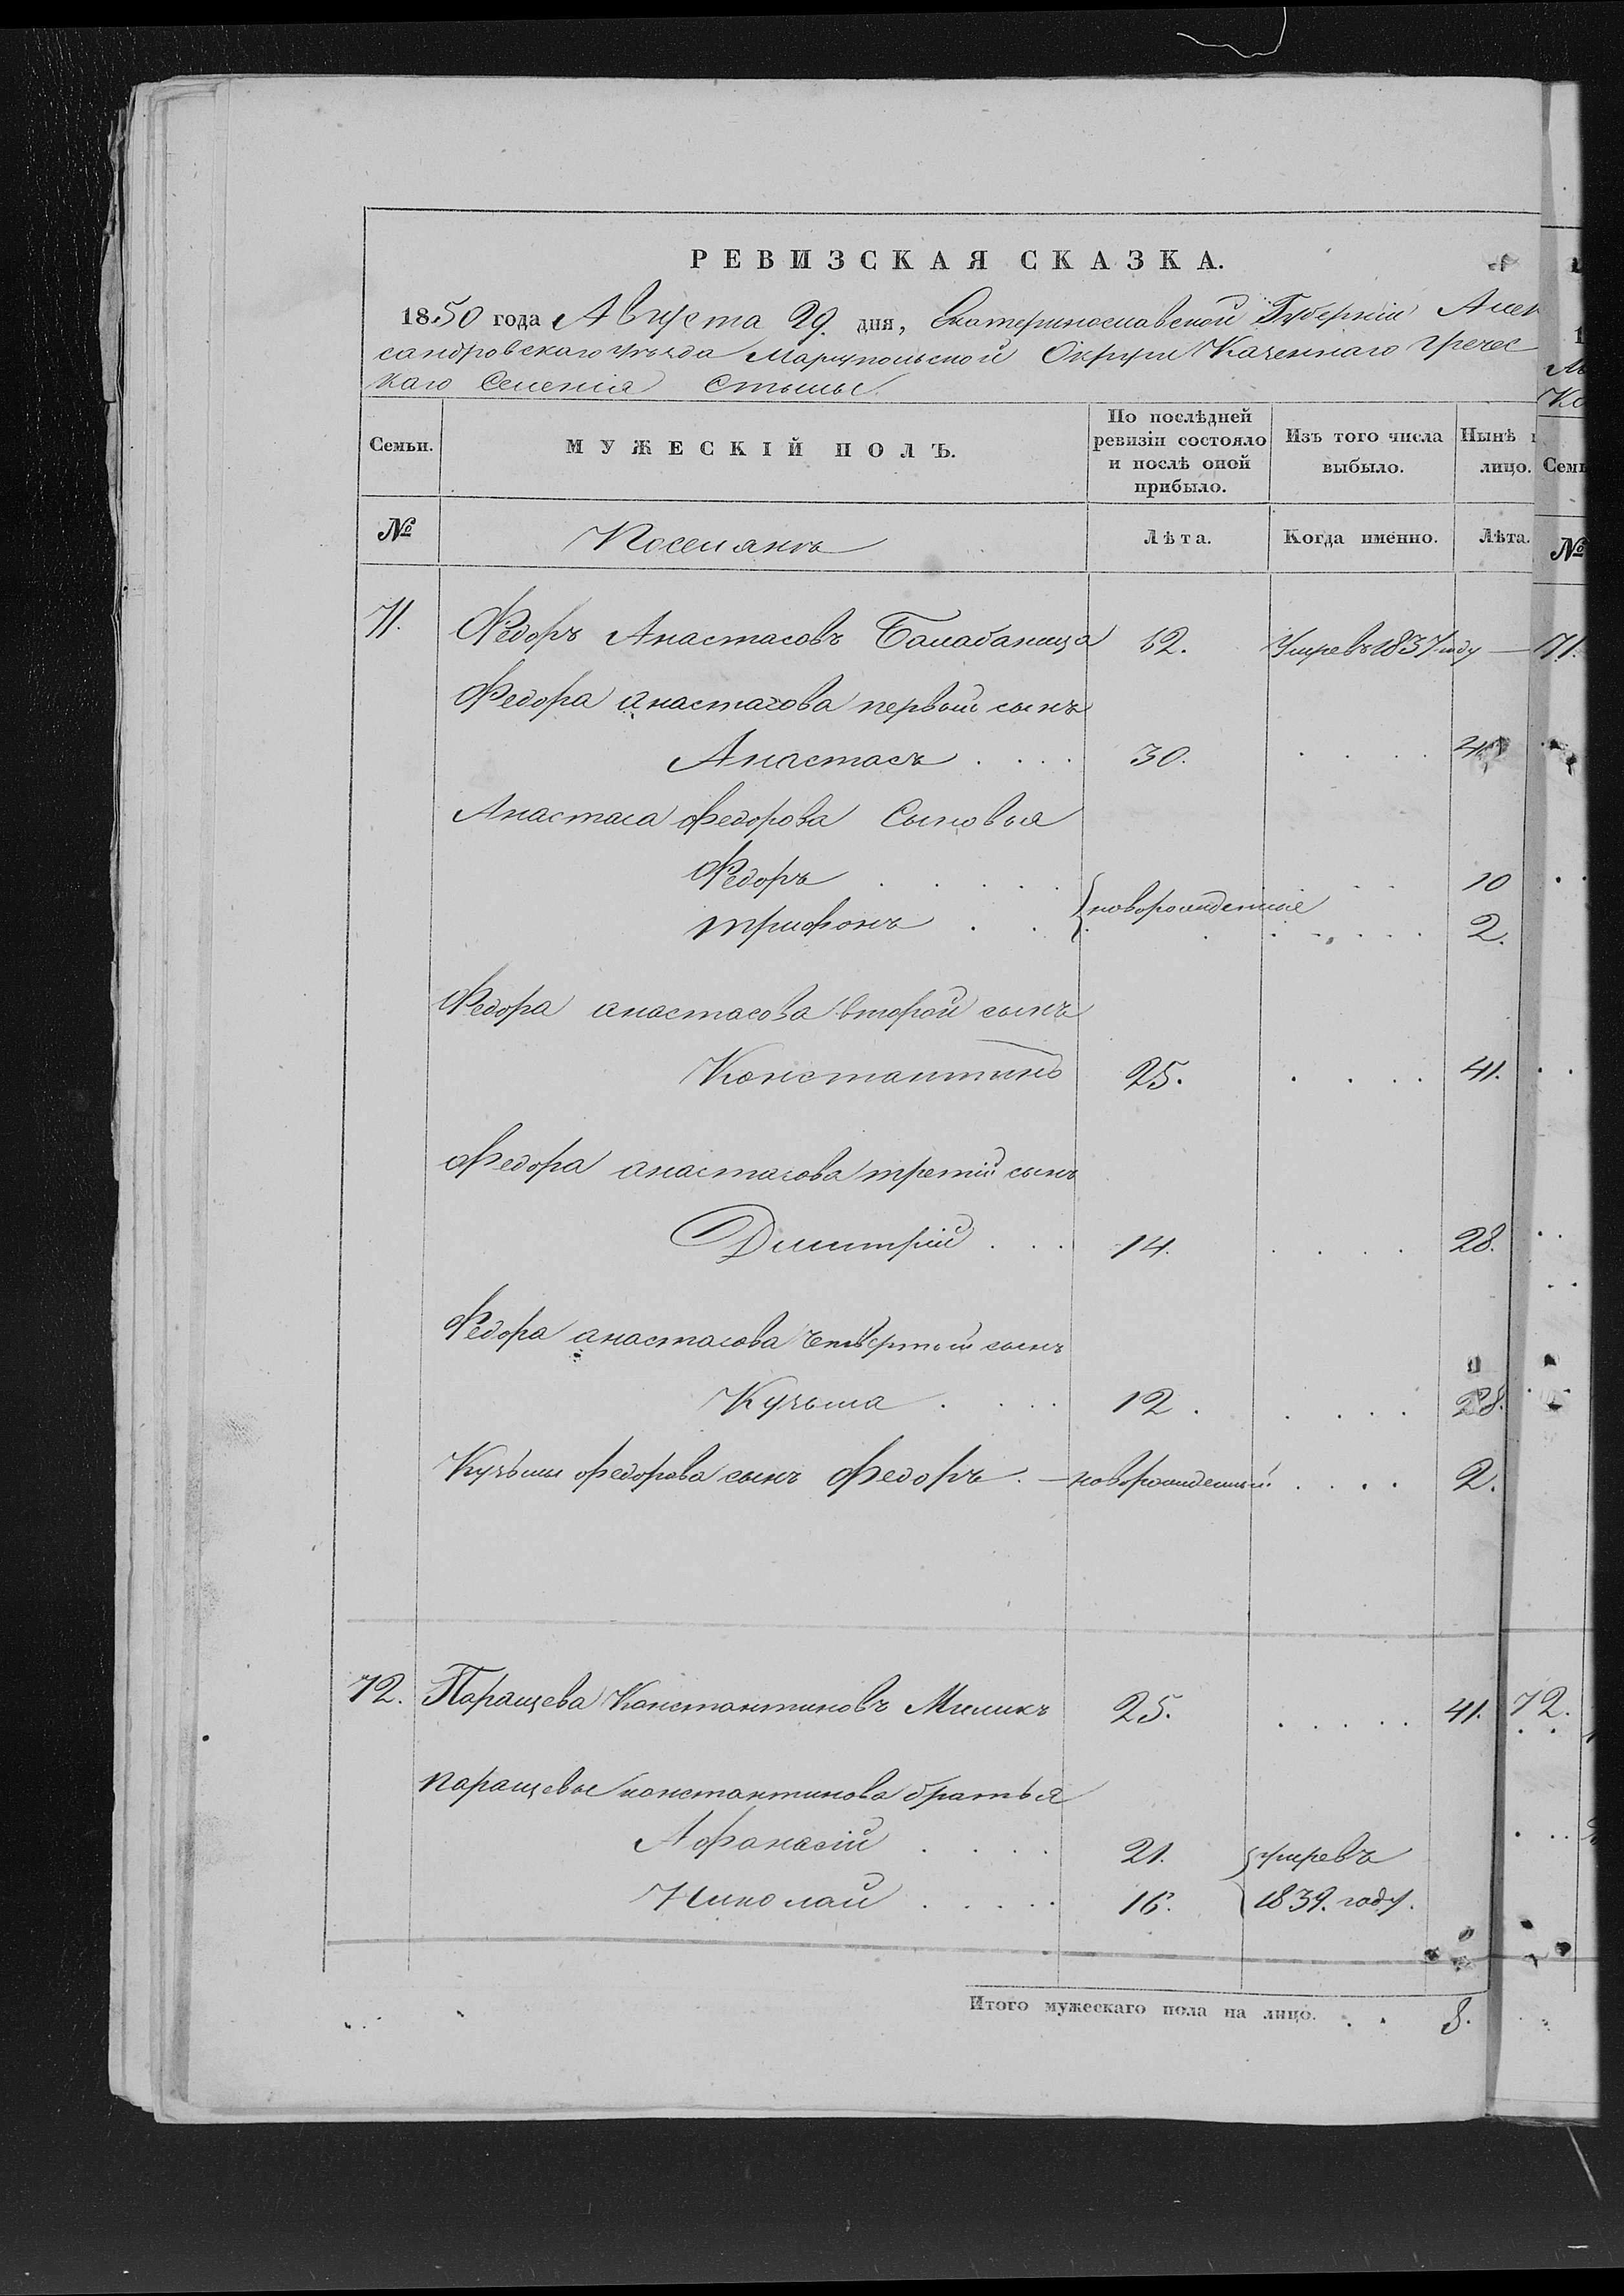 РЕВИЗСКАЯ СКАЗКА.
1850 года Августа 29. дня, Екатеринославской Губерніи Алек
сандровскаго уѣзда Маріупольской Округи Казеннаго гречес
каго Селенія Стылы
Семьи. МУЖЕСКІЙ ПОЛЪ. По послѣдней ревизіи состояло и послѣ оной прибыло. Изъ того числа выбыло. Нынѣ лицо. Семь
№ Поселянъ Лѣта. Когда именно. Лѣта. №
71. Федоръ Анастасовъ Балабаница 62. Умре въ 1837 году — 71.
Федора анастасова первый сынъ
Анастасъ 30.
Анастаса федорова Сыновья
Федоръ 10
трифонъ } новорожденные 2.
Федора анастасова второй сынъ
Константинъ 25. 41.
Федора анастасова третій сынъ
Димитрій 14. 28.
Федора анастасова четвертой сынъ
Кузьма 12. 28.
Кузьмы федорова сынъ Федоръ — новорожденный 2.
72. Паращева Константиновъ Миликъ 25. 41. 72.
паращевы константинова братья
Афанасій 21. } умре въ
Николай 16. 1839. году.
Итого мужескаго пола на лицо. 8.